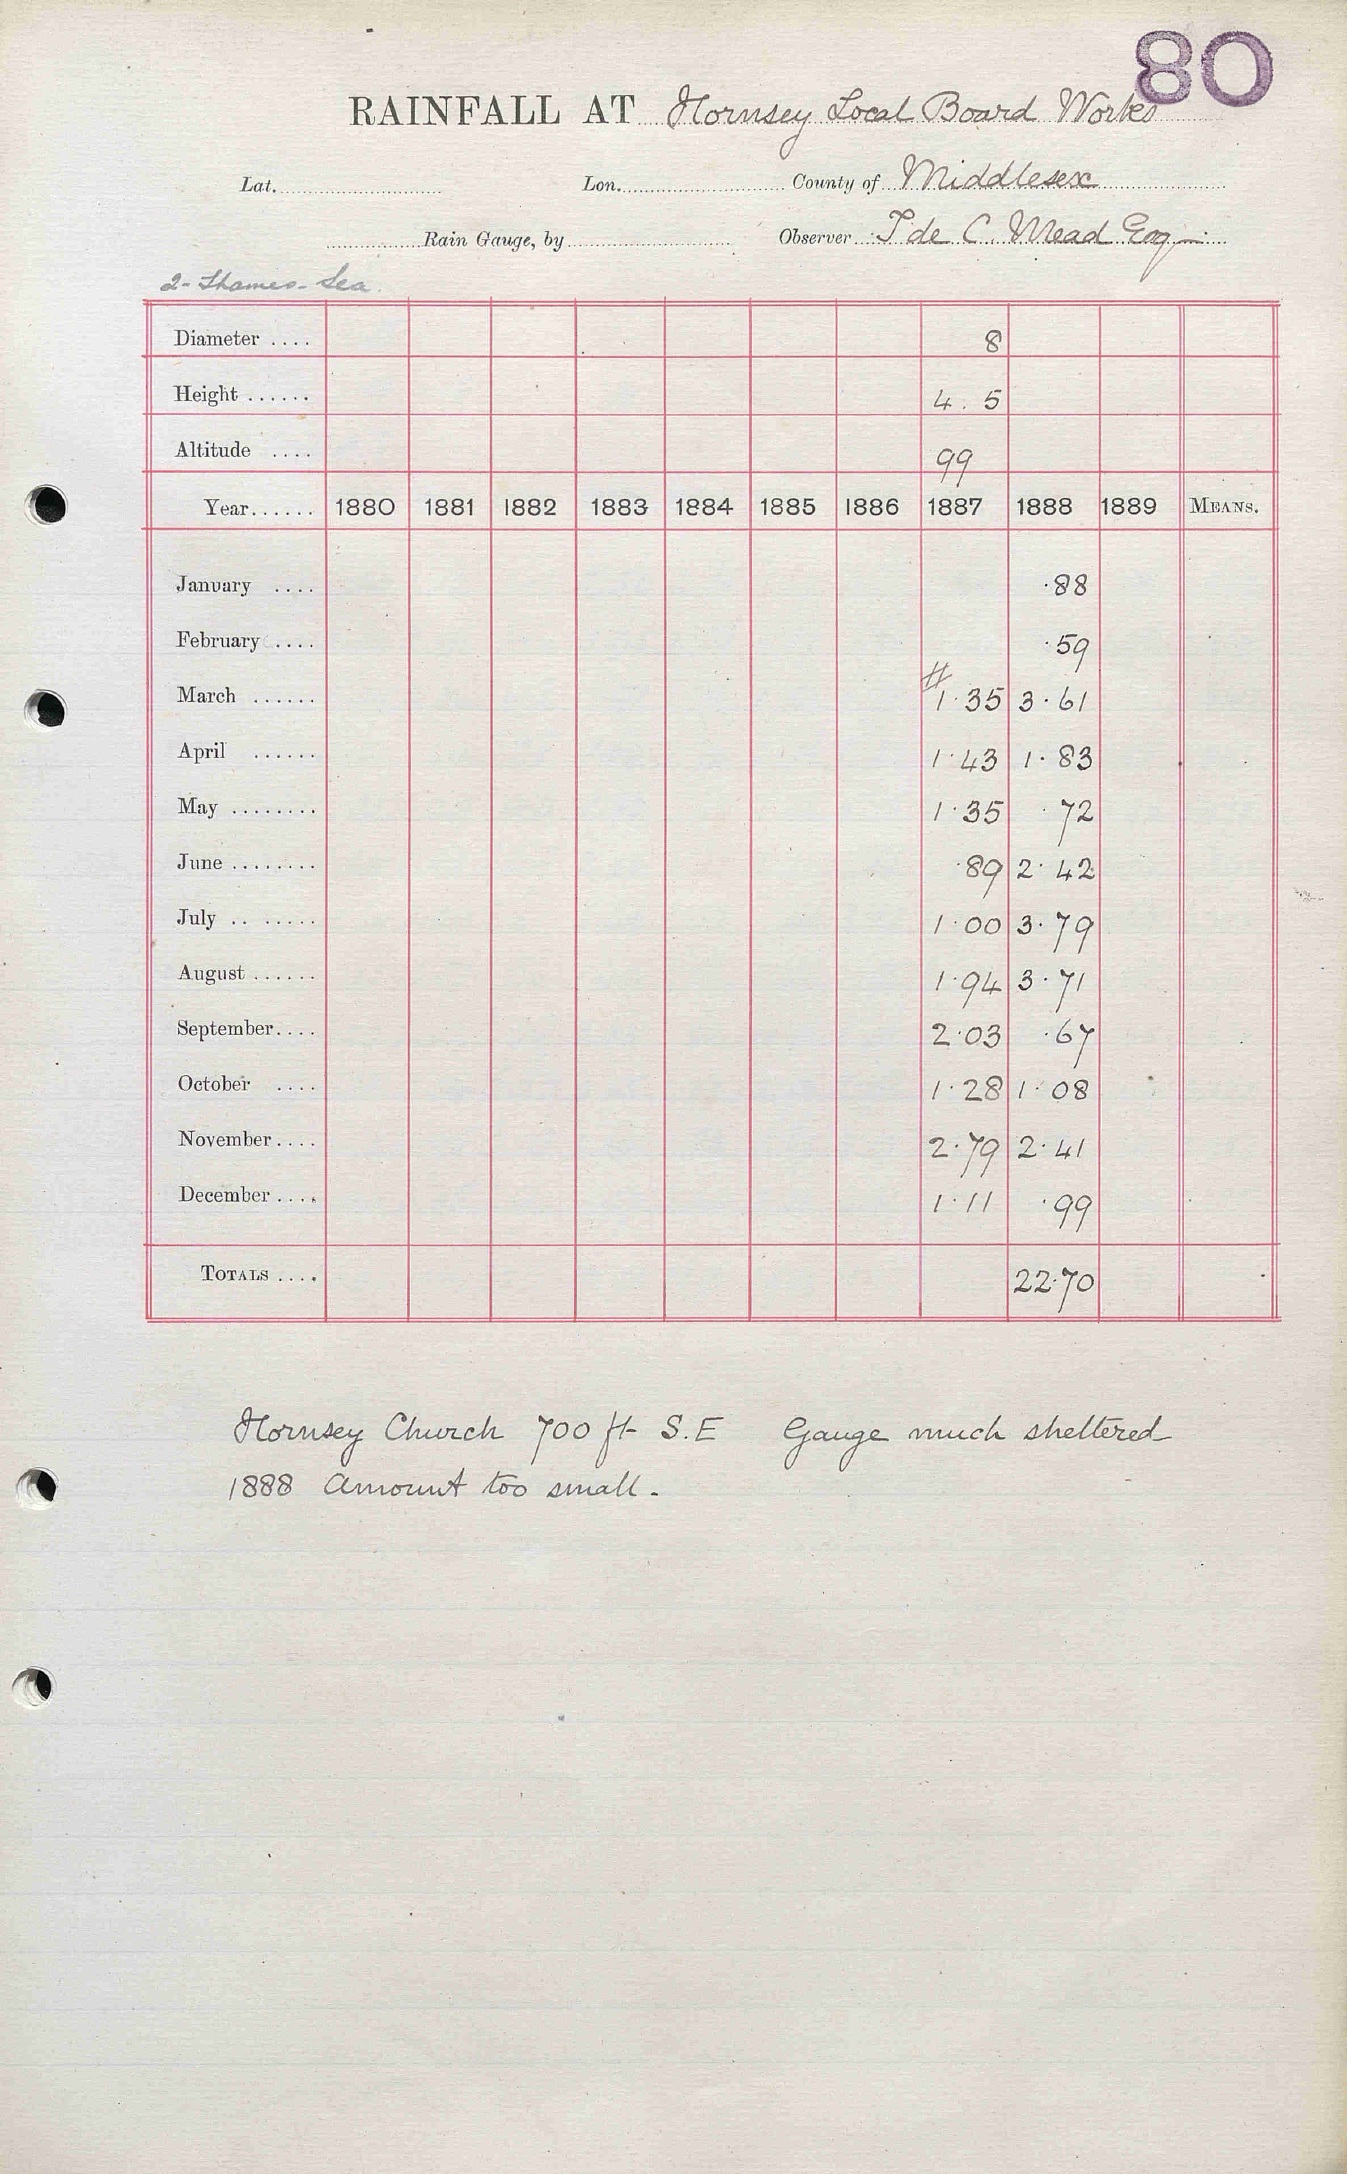 80
RAINFALL AT Hornsey Local Board Works
Lat. Lon. County of Middlesex
Rain Gauge, by Observer T de C. Mead Esq
2 - Thames - Sea.
Diameter .... 8
Height ...... 4. 5
Altitude .... 99
Year...... 1880 1881 1882 1883 1884 1885 1886 1887 1888 1889 MEANS.
January .... ·88
February .... ·59
March ...... # 1·35 3·61
April ...... 1·43 1·83
May ........ 1·35 ·72
June ........ ·89 2·42
July .. ..... 1·00 3·79
August ...... 1·94 3·71
September.... 2·03 ·67
October .... 1·28 1·08
November.... 2·79 2·41
December .... 1·11 ·99
TOTALS .... 22·70
Hornsey Church 700 ft S.E Gauge much sheltered
1888 Amount too small.